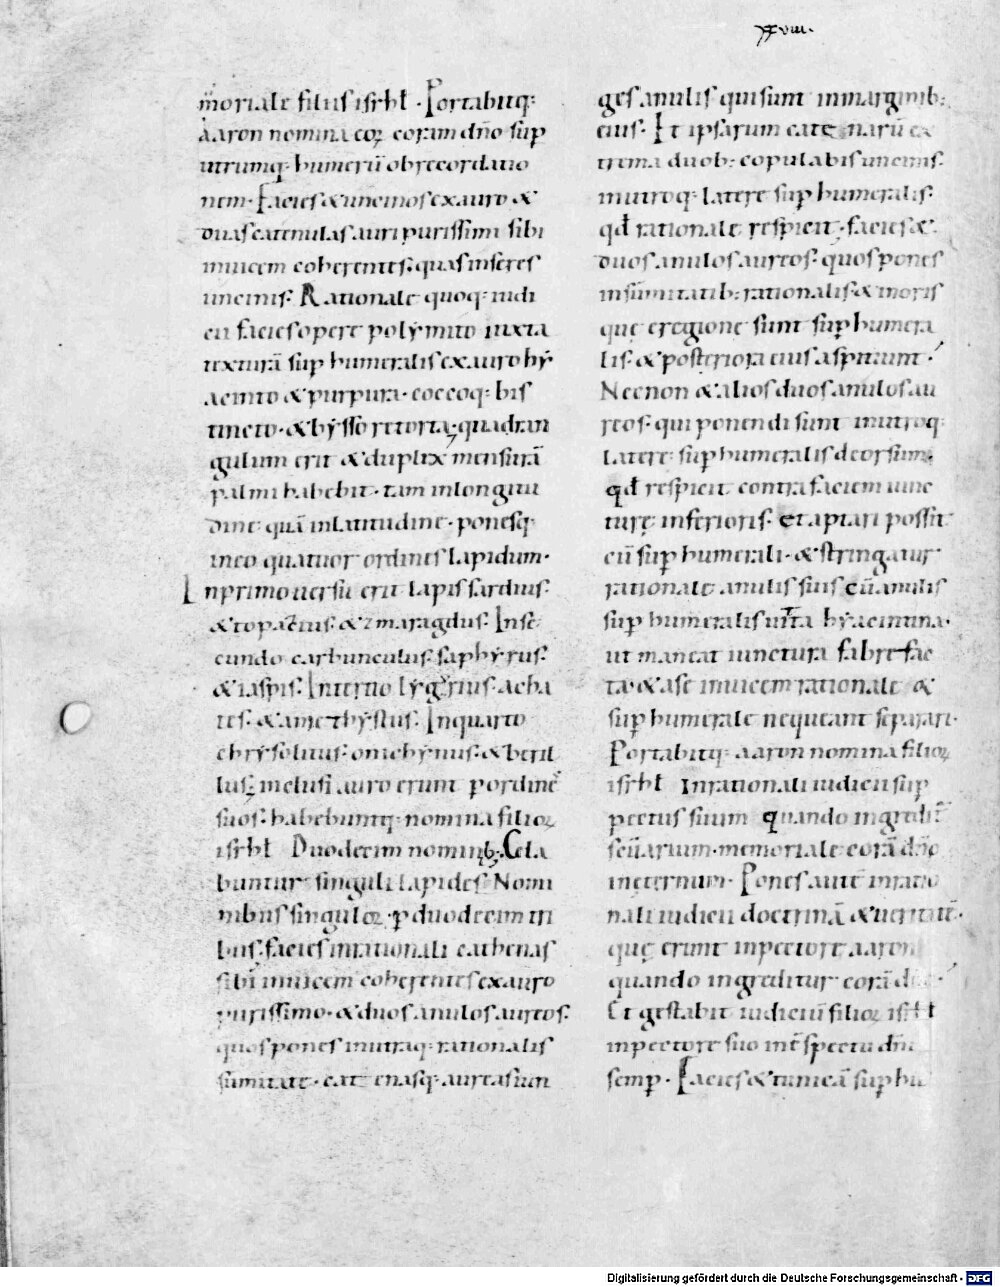 xxviii.
moriale filiis isrhl. Portabitq:
aaron nomina eoꝝ coram dño sup
utrumq. humerū ob recordatio
nem. Facies & uncinos ex auro &
duas catenulas auri purissimi sibi
inuicem coherentes. quas inseres
uncinis. Rationale quoq: iudi
cii facies opere polymito iuxta
texturā sup humeralis ex auro hy
acinto & purpura. coccoq: bis
tincto. & bysso retorta; quadran
gulum erit & duplex mensurā
palmi habebit. tam in longitu
dine quā in latitudine. ponesq
in eo quattuor ordines lapidum.
In primo uersu erit lapis sardius.
& topatius. & zmaragdus. In se
cundo carbunculus. saphyrus.
& iaspis. In tertio lygyrius. acha
tes. & amethystus. In quarto
chrysolitus. onichynus. & beril
lus; inclusi auro erunt p ordinē
suos. habebuntq. nomina filioꝝ
isrhl Duodecim nominib; Cela
buntur singuli lapides Nomi
nibus singuloꝝ. p duodecim tri
bus. facies in rationali cathenas
sibi inuicem coherentes ex auro
purissimo. & duos anulos aureos.
quos pones in utraq. rationalis
sumitate. catenasq. aureas iun
ges anulis qui sunt in marginib;
eius. Et ipsarum catenarū ex
trema duob: copulabis uncinis.
in utroq. latere sup humeralis.
qđ rationale respicit. facies &
duos anulos aureos. quos pones
in sūmitatib: rationalis. & in oris
quę e regione sunt sup humera
lis. & posteriora eius aspitiunt.
Necnon & alios duos anulos au
reos. qui ponendi sunt in utroq:
latere. sup humeralis deorsum.
qđ respicit contra faciem iunc
turę inferioris. Et aptari possit
cū sup humerali. & stringatur
rationale anulis suis cū anulis
sup humeralis uitta hyacintina.
ut maneat iunctura fabrefac
ta. & a se inuicem rationale &
sup humerale nequeant separari.
Portabitq. aaron nomina filioꝝ
isrhl In rationali iudicii sup
pectus suum quando ingredit̄
scūarium. memoriale corā dño
in ęternum. Pones autē in ratio
nali iudicii doctrinā & ueritatē.
quę erunt in pectore aaron
quando ingreditur corā dño.
Et gestabit iudiciū filioꝝ isrhl
in pectore suo in c̄spectu dñi
semp. Facies & tunicā sup hu
Digitalisierung gefördert durch die Deutsche Forschungsgemeinschaft - DFG